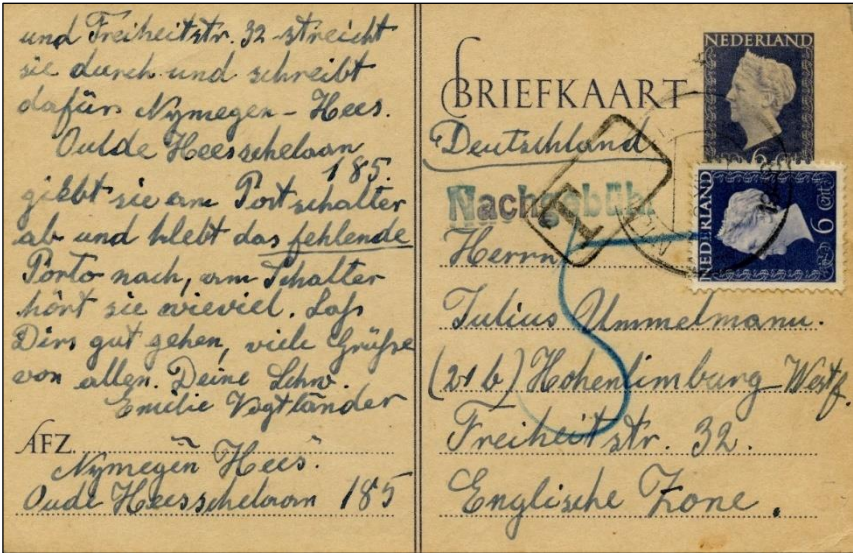 und Freiheitstr. 32 streicht
sie durch und schreibt
dafür Nymegen - Hees.
Oulde Heesschelaan
185.
giebt sie am Postschalter
ab und klebt das fehlende
Porto nach, am Schalter
hört sie wieviel. Laß
Dirs gut gehen, viele Grüße
von allen. Deine Schw.
Emilie Vogtländer
AFZ.
Nymegen Hees.
Oude Heesschelaan 185
BRIEFKAART
NEDERLAND
6
Deutschland
Nachgebühr
T
NEDERLAND
6 cent
Herrn
Julius Ummelmann.
(21 b) Hohenlimburg Westf.
Freiheitstr. 32.
Englische Zone.